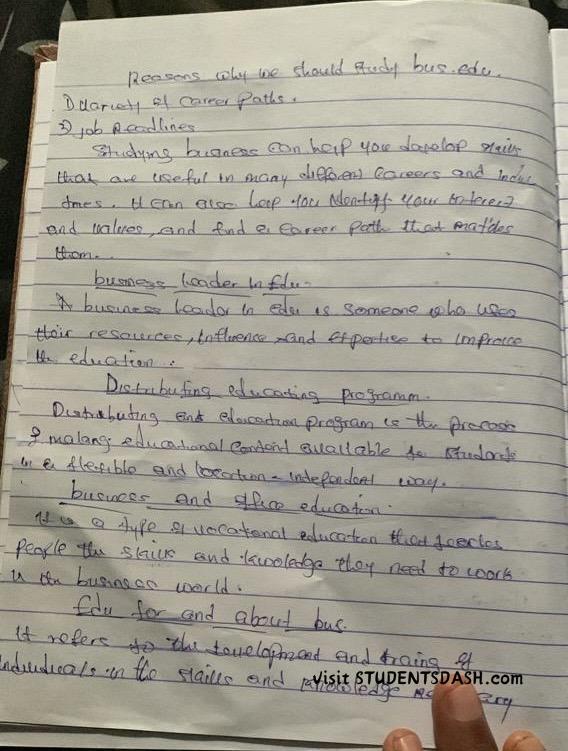 Reasons why we should study bus. edu.
1) Variety of career Paths.
2) job Readlines
Studying business can help you develop skills
that are useful in many different careers and indus
tries. It can also help you identify your interest
and values, and find a career path that matches
them.
business leader in Edu.
A business leader in edu is someone who uses
their resources, influence and expertise to improve
the education.
Distributing educating programm.
Distributing and education program is the process
of making educational content available to students
in a flexible and location-independent way.
business and office education.
It is a type of vocational education that teaches
people the skills and knowledge they need to work
in the business world.
Edu for and about bus.
It refers to the development and traing of
individuals in the skills and knowledge
visit STUDENTSDASH.com